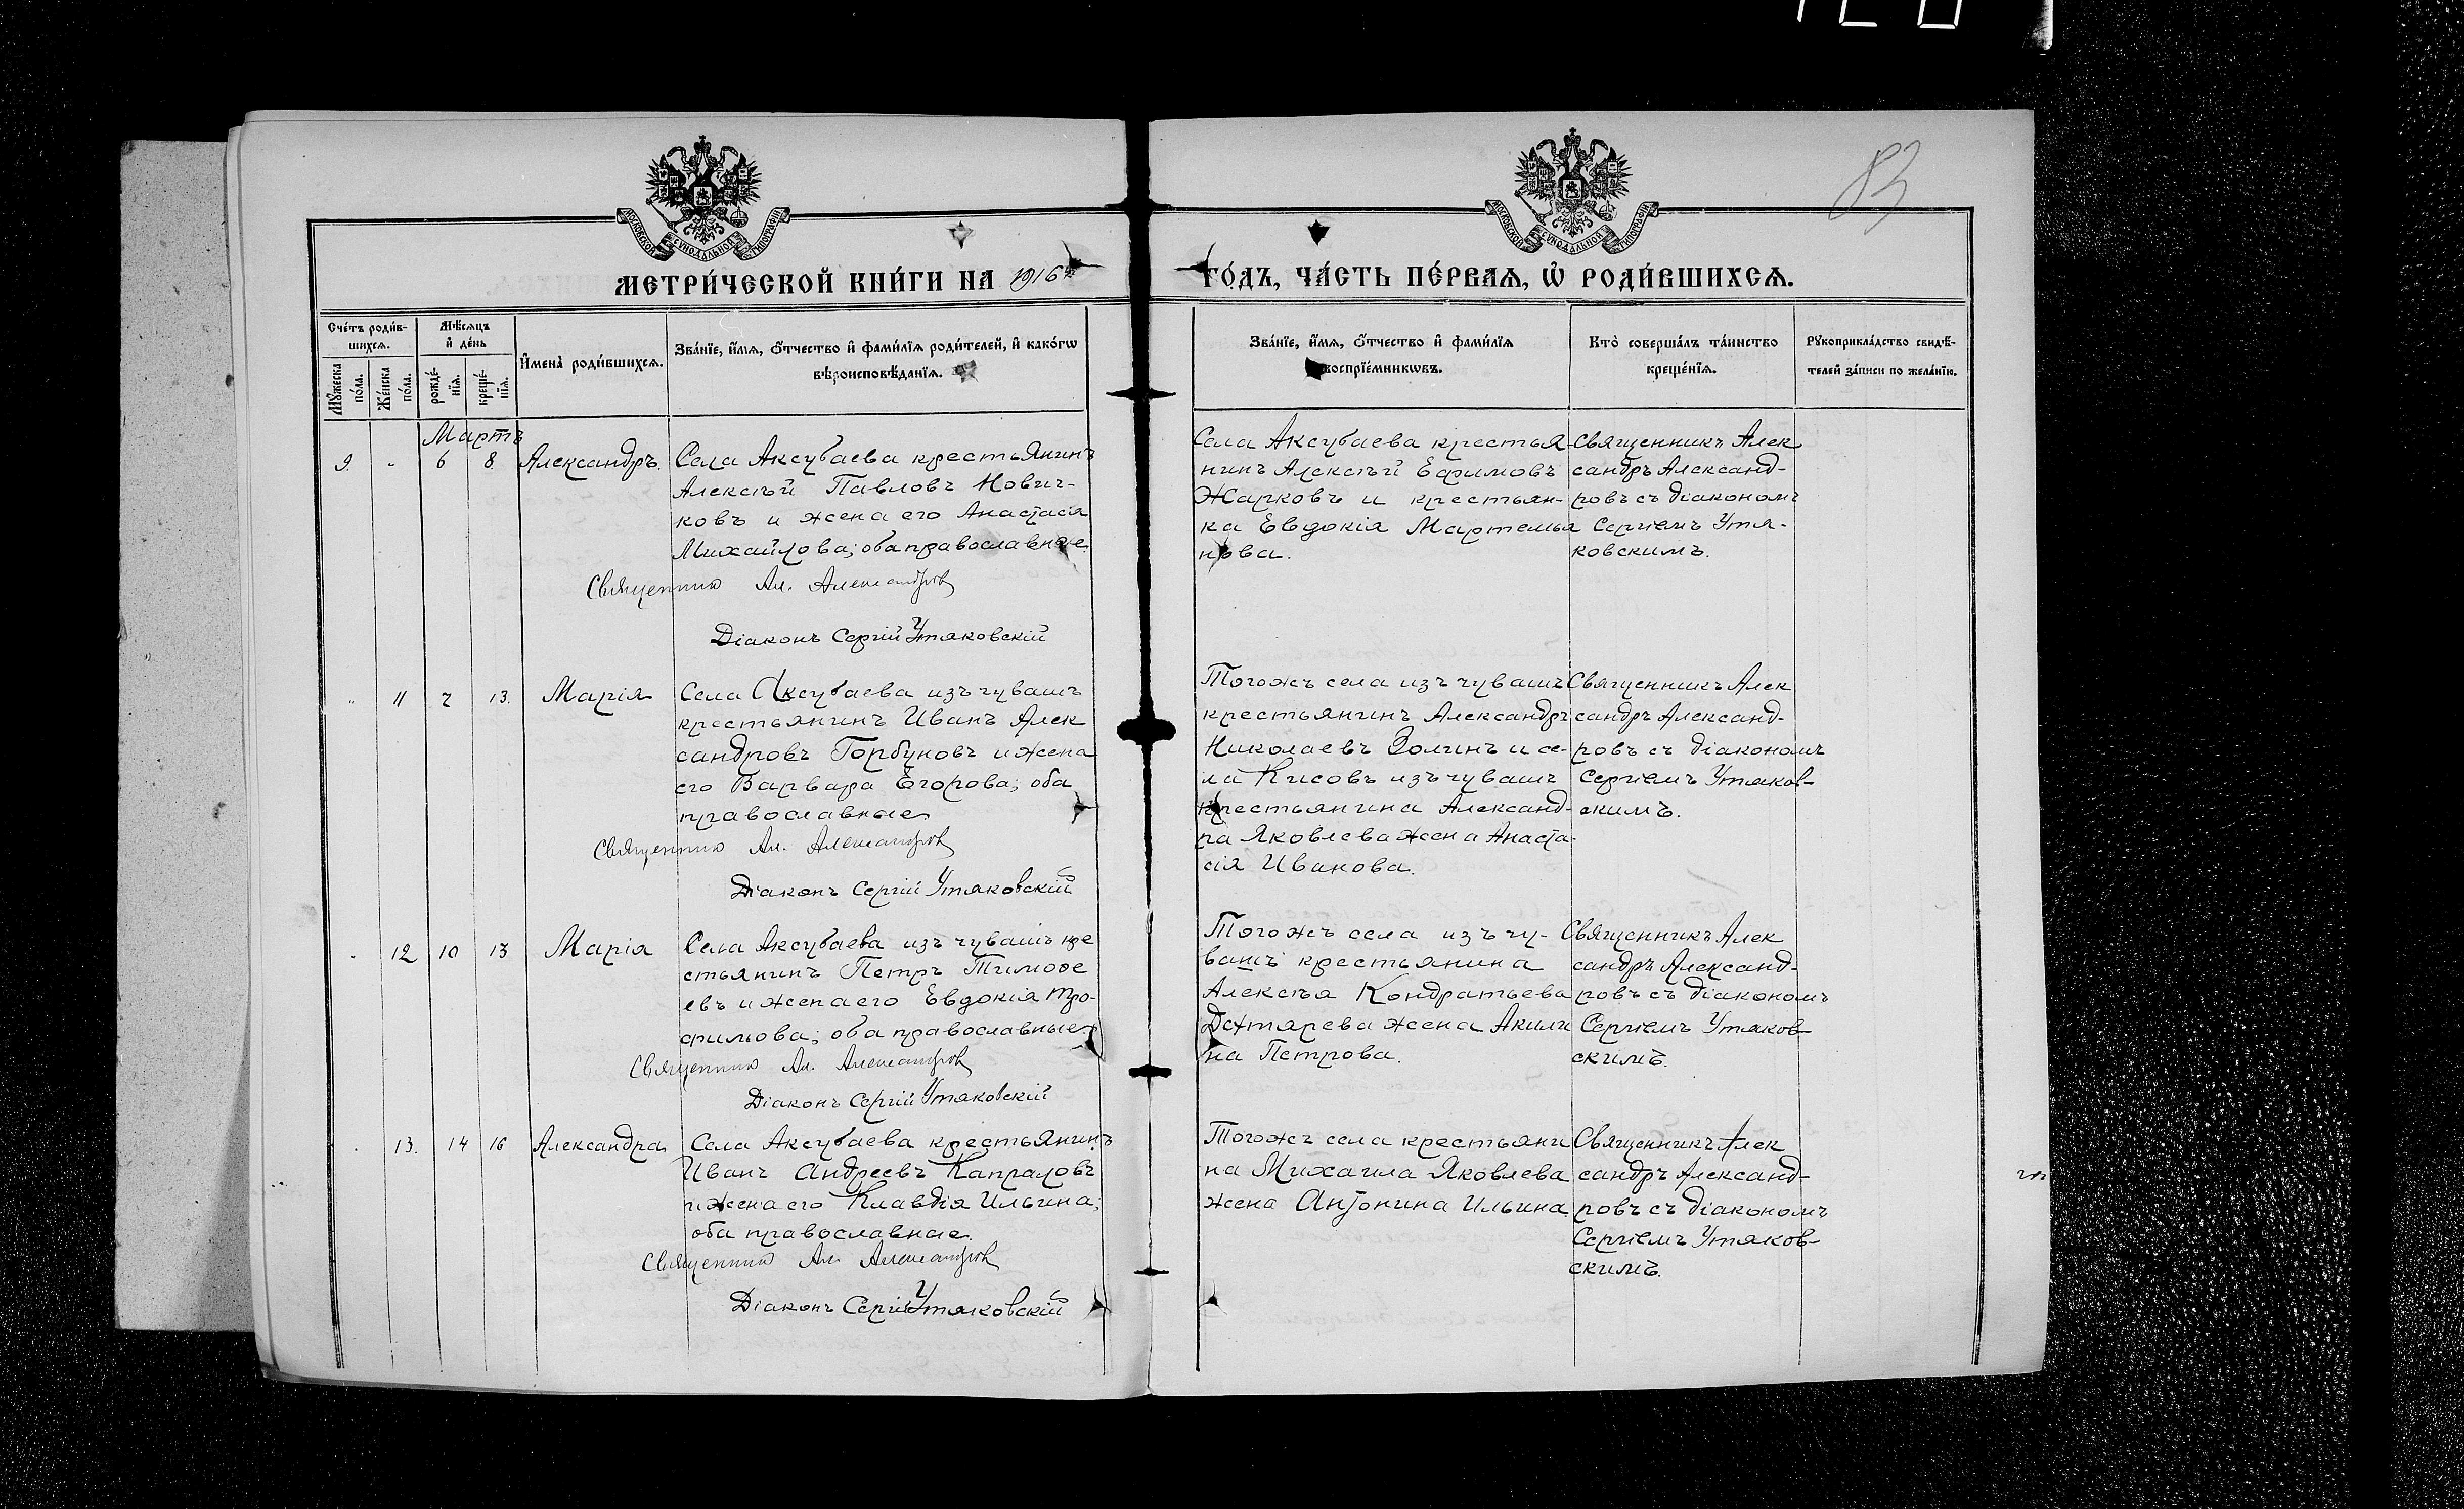 83
МОСКОВСКОЙ СѴНОДАЛЬНОЙ ТИПОГРАФІИ
МОСКОВСКОЙ СѴНОДАЛЬНОЙ ТИПОГРАФІИ
МЕТРИ́ЧЕСКОЙ КНИ́ГИ НА 1916й
ГО́ДЪ, ЧА́СТЬ ПЕ́РВАѦ, Ѿ РОДИ́ВШИХСѦ.
Сче́тъ роди́в-
шихсѧ.
Мꙋ́жеска по́ла.
Же́нска по́ла.
Мѣ́сѧцъ
и҆ де́нь
рожде́-
нїѧ.
креще́-
нїѧ.
И҆мена̀ роди́вшихсѧ.
Зва́нїе, и҆́мѧ, ѻ҆́тчество и҆ фами́лїѧ роди́телей, и҆ како́гѡ
вѣроисповѣ́данїѧ.
Зва́нїе, и҆́мѧ, ѻ҆́тчество и҆ фами́лїѧ
воспрїе́мникѡвъ.
Кто̀ соверша́лъ та́инство
креще́нїѧ.
Рꙋкоприкла́дство свидѣ́-
телей за́писи по жела́нїю.
Мартъ
9. - 6 8. Александръ.
Села Аксубаева крестьянинъ
Алексѣй Павловъ Нович-
ковъ и жена его Анастасія
Михайлова; оба православные
Священник Ал. Александров
Діаконъ Сергій Утяковскій
Села Аксубаева крестья-
нинъ Алексѣй Ефимовъ
Жарковъ и крестьян-
ка Евдокія Мартемья
нова.
Священникъ Алек
сандръ Александ-
ровъ съ діакономъ
Сергіемъ Утя-
ковскимъ.
" 11 7 13. Марія
Села Аксубаева изъ чувашъ
крестьянинъ Иванъ Алек
сандровъ Горбуновъ и жена
его Варвара Егорова; оба
православные
Священник Ал. Александров
Діаконъ Сергій Утяковскій
Тогожъ села изъ чувашъ
крестьянинъ Александръ
Николаевъ Золинъ и се-
ла Кисовъ изъ чувашъ
крестьянина Александ-
ра Яковлева жена Анаста-
сія Иванова.
Священникъ Алек
сандръ Александ-
ровъ съ діакономъ
Сергіемъ Утяков-
скимъ.
12 10 13 Марія
Села Аксубаева изъ чувашъ кре
стьянинъ Петръ Тимофе
евъ и жена его Евдокія Тро-
фимова; оба православные
Священник Ал. Александров
Діаконъ Сергій Утяковскій
Тогожъ села изъ чу-
вашъ крестьянина
Алексѣя Кондратьева
Дехтярева жена Акили
на Петрова.
Священникъ Алек
сандръ Александ-
ровъ съ діакономъ
Сергіемъ Утяков-
скимъ.
13. 14 16 Александра
Села Аксубаева крестьянинъ
Иванъ Андреевъ Капраловъ
и жена его Клавдія Ильина;
оба православные.
Священник Ал. Александров
Діаконъ Сергій Утяковскій
Тогожъ села крестьяни
на Михаила Яковлева
жена Антонина Ильина
Священникъ Алек
сандръ Александ-
ровъ съ діакономъ
Сергіемъ Утяков-
скимъ.